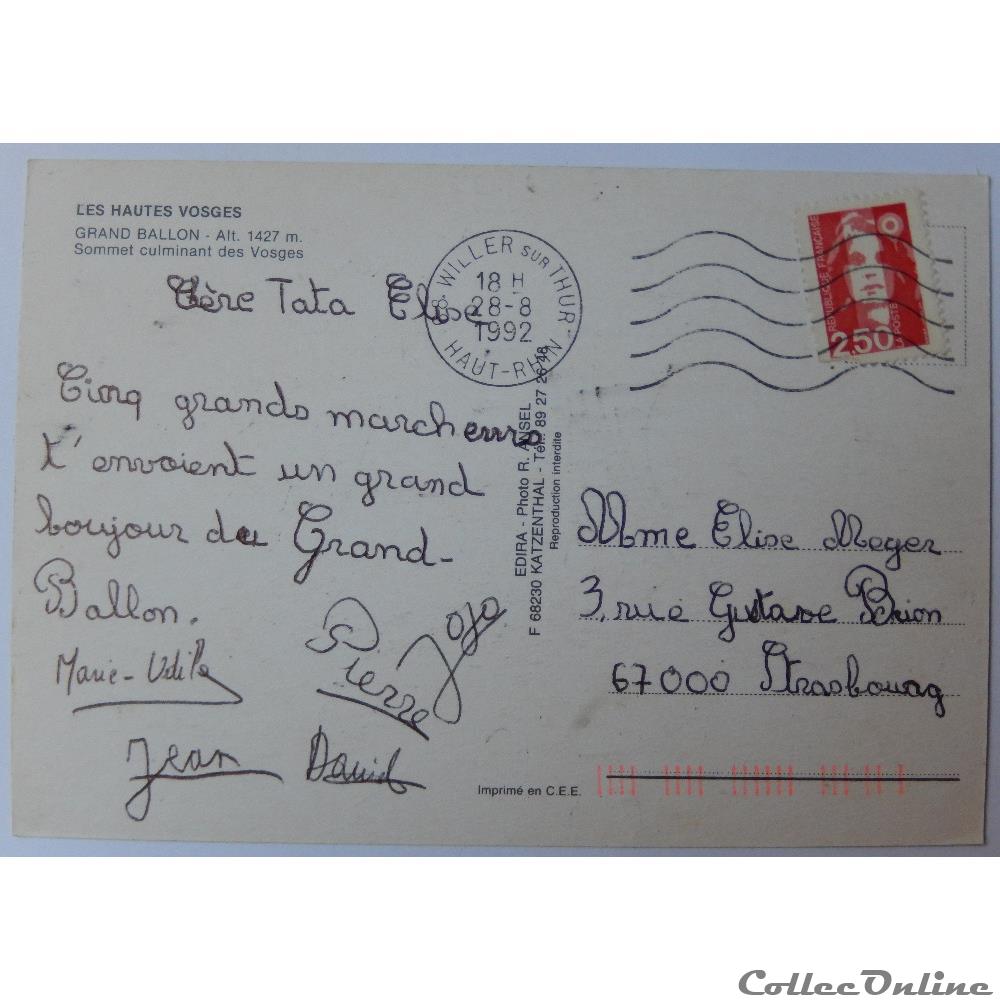 LES HAUTES VOSGES
GRAND BALLON - Alt. 1427 m.
Sommet culminant des Vosges
Chère Tata Elise
Cinq grands marcheurs
t'envoient un grand
boujour du Grand-
Ballon.
Marie-Odile
Pierre
Jojo
Jean
David
68 WILLER SUR THUR
18 H
28-8
1992
HAUT-RHIN
EDIRA - Photo R. ANSEL
F 68230 KATZENTHAL - Tél. 89 27 26 48
Reproduction interdite
RÉPUBLIQUE FRANÇAISE
LA POSTE
2,50
Mme Elise Meyer
3, rue Gustave Brion
67000 Strasbourg
Imprimé en C.E.E.
CollecOnline